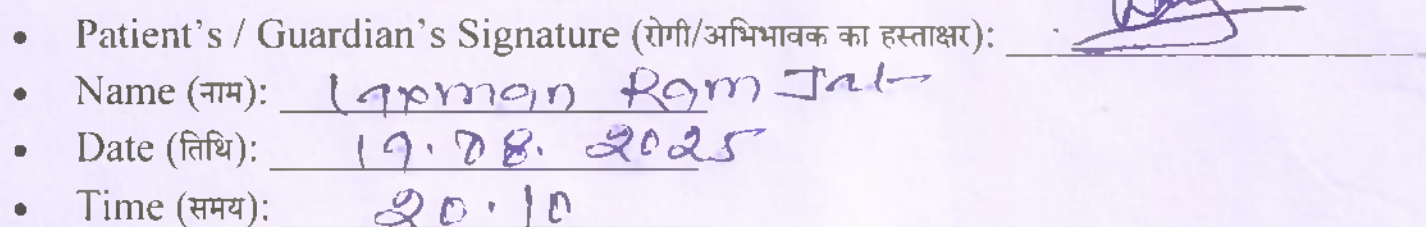 • Patient's / Guardian's Signature (रोगी/अभिभावक का हस्ताक्षर):
• Name (नाम): Laxman Ram Jat
• Date (तिथि): 19.08.2025
• Time (समय): 20.10